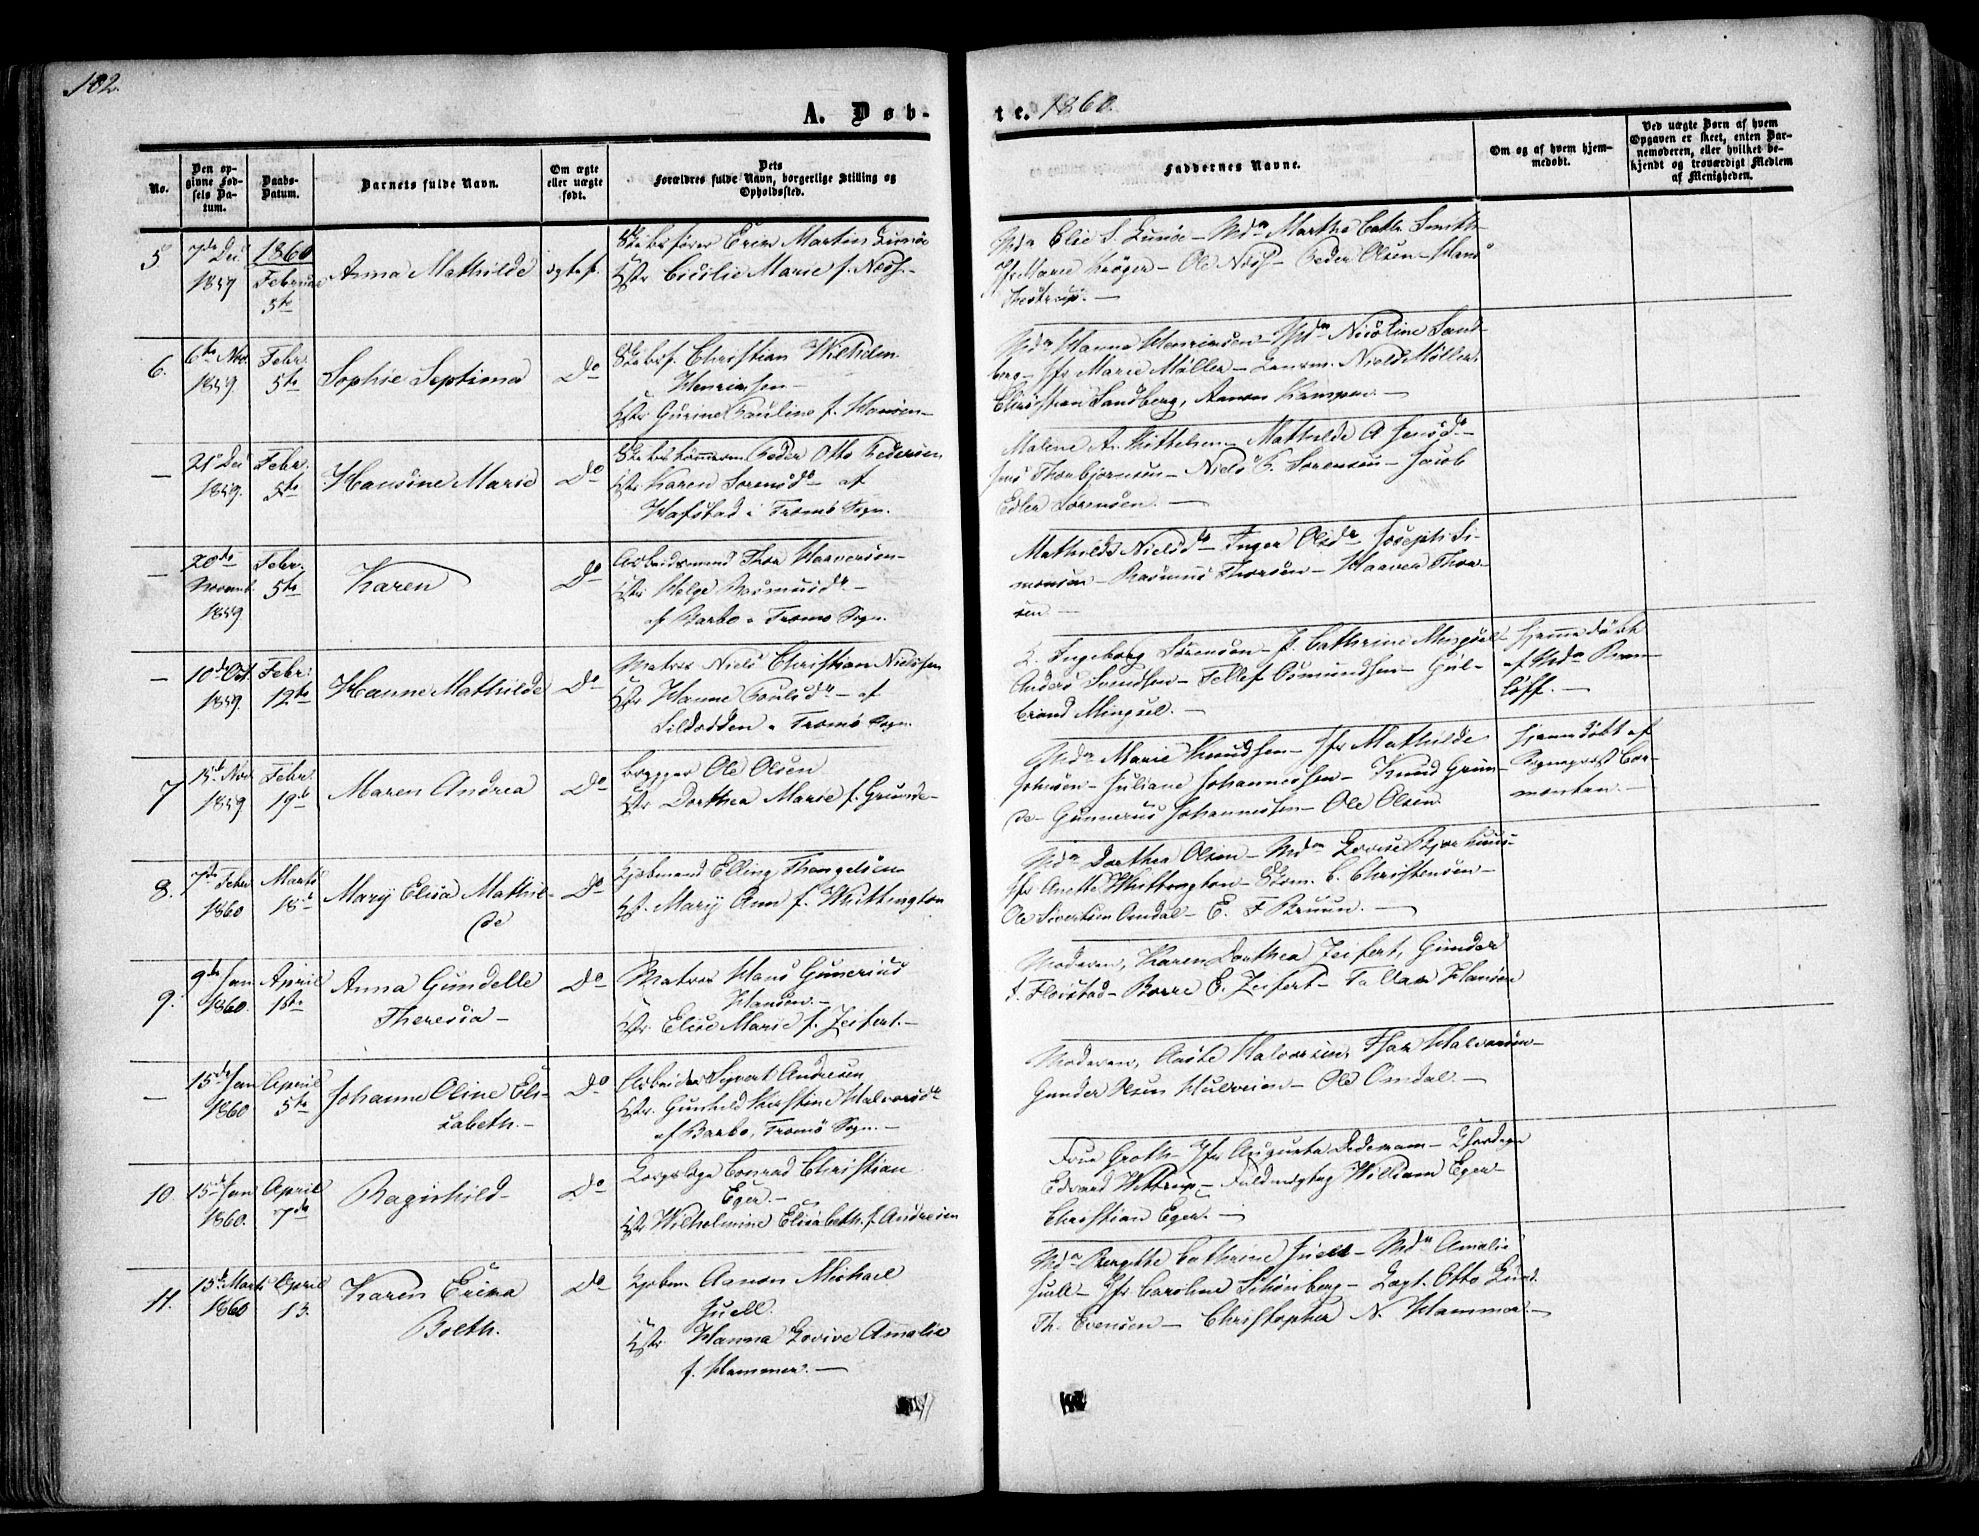 102.
A. Døb-
te. 1860.
No.
Den op-
givne Fød-
sels Da-
tum.
Daabs-
Datum.
Barnets fulde Navn.
Om ægte
eller uægte
født.
Dets
Forældres fulde Navn, borgerlige Stilling og
Opholdssted.
Faddernes Navne.
Om og af hvem hjem-
medøbt.
Ved uægte Børn af hvem
Opgaven er skeet, enten Bar-
nemoderen, eller hvilket be-
kjendt og troværdigt Medlem
af Menigheden.
5
7de Dec
1859
1860
Februar
5te
Anna Mathilde
ægtef.
Skibsfører Martin
Cicilie Marie f. Næss.
Elie S. Mda Marthe Cath. Smith
Jfr Marie Krøger - Ole Næss - Peder Olsen - Hans
6.
6te Nov.
1859
Febr.
5te
Sophie Septima
Do
Skibsf. Christian Wilhelm
Henriksen -
Gurine Pauline f. Hansen -
Mda Hanna Henriksen - Mda Nicoline Sand-
berg - Jfr Marie Møller - Niels Møller
Christian Sandberg, Aanon
-
21de Dec
1859.
Febr.
5te
Hansine Marie
Do
Skibstømmerm. Peder Otto Pedersen
Karen Sorensda af
Hafstad i Tromø Sogn.
Malene A. Kittelsen - Mathilde A. Jensda -
Jens Thorbjørnsen - Niels P. Sorensen - Jacob
Edler Sørensen. -
-
20de
Novemb.
1859
Febr.
5te
Karen
Do
Arbeidsmand Thor Haaversen -
Helge Rasmusda -
af Barbo i Tromø Sogn.
Mathilde Nielsda - Inger Olsda - Joseph Si-
monsen - Rasmus Thorsen - Haaver Thor-
sen -
-
10de Oct.
1859.
Febr.
12te
Hanne Mathilde
Do
Matros Niels Christian Nielssen
Hanne Poulsda - af
Sildodden i Tromø Sogn.
Ingeborg Sørensen - Cathrine
Anders Svendsen - Tellef Osmundsen - Gul-
brand
Hjemmedøbt
af Mda Bran-
Løff. -
7
15de Nov
1859
Febr.
19de
Maren Andrea
Do
Brygger Ole Olsen
Dorthea Marie f. Grunde -
Mda Marie Knudsen - Jfr Mathilde
Johnsen - Juliane Johannessen - Knud Grun-
de - Gunnerus Johannessen - Ole Olsen
Hjemmedøbt af
Sognepræst Cor-
montan. -
8.
7de Febr
1860
Marts
18de
Mary Elisa Mathil-
de
Do
Kjøbmand Elling Thengelsen
Mary Ann f. Whittington
Mda Dorthea Olsen - Mda Lovise
Jfr Anette Whittington - C. Christensen -
Ole Sivertsen Omdal - E. F Bruun. -
9.
9de Jan
1860.
April
1ste
Anna Gundelle
Theresia -
Do
Matros Hans Gunerius
Hansen. -
Elise Marie f. Zeifert. -
Moderen, Karen Dorthea Zeifert, Gunder
Fløistad - Børre E. Zeifert - Tallak Hansen
-
15de Jan
1860
April
5te
Johanne Oline Eli-
sabeth. -
Do
Arbeider Syvert Andresen
Gunhild Kirstine Halvorsda
af Barbo, Tromø Sogn. -
Moderen, Aaste Halvorsen, Halvorsen -
Gunder Olsen - Ole Omdal. -
10.
15de Jan
1860.
April
7de
Ragnhild -
Do
Corpslæge Conrad Christian
Eger. -
Wilhelmine Elisabeth f. Andresen
Frue Groth - Jfr Augusta Dedekam -
Edvard - Fuldmægtig William Eger -
Christian Eger. -
11.
15de Marts
1860
April
13.
Karen Erica
Boeth.
Do
Kjøbm. Aanon Michael
Juell.
Hanna Lovive Amalie
f. Hammer. -
Mda Bergithe Cathrine Juell - Mda Amalie
Juell - Jfr Caroline Schønberg - Capt. Otto Lund.
Th. Evensen - Christopher N. Hammer. -